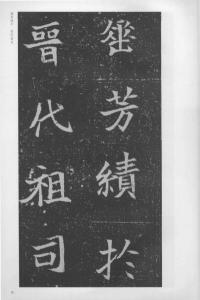 垂芳績於
晉代祖司